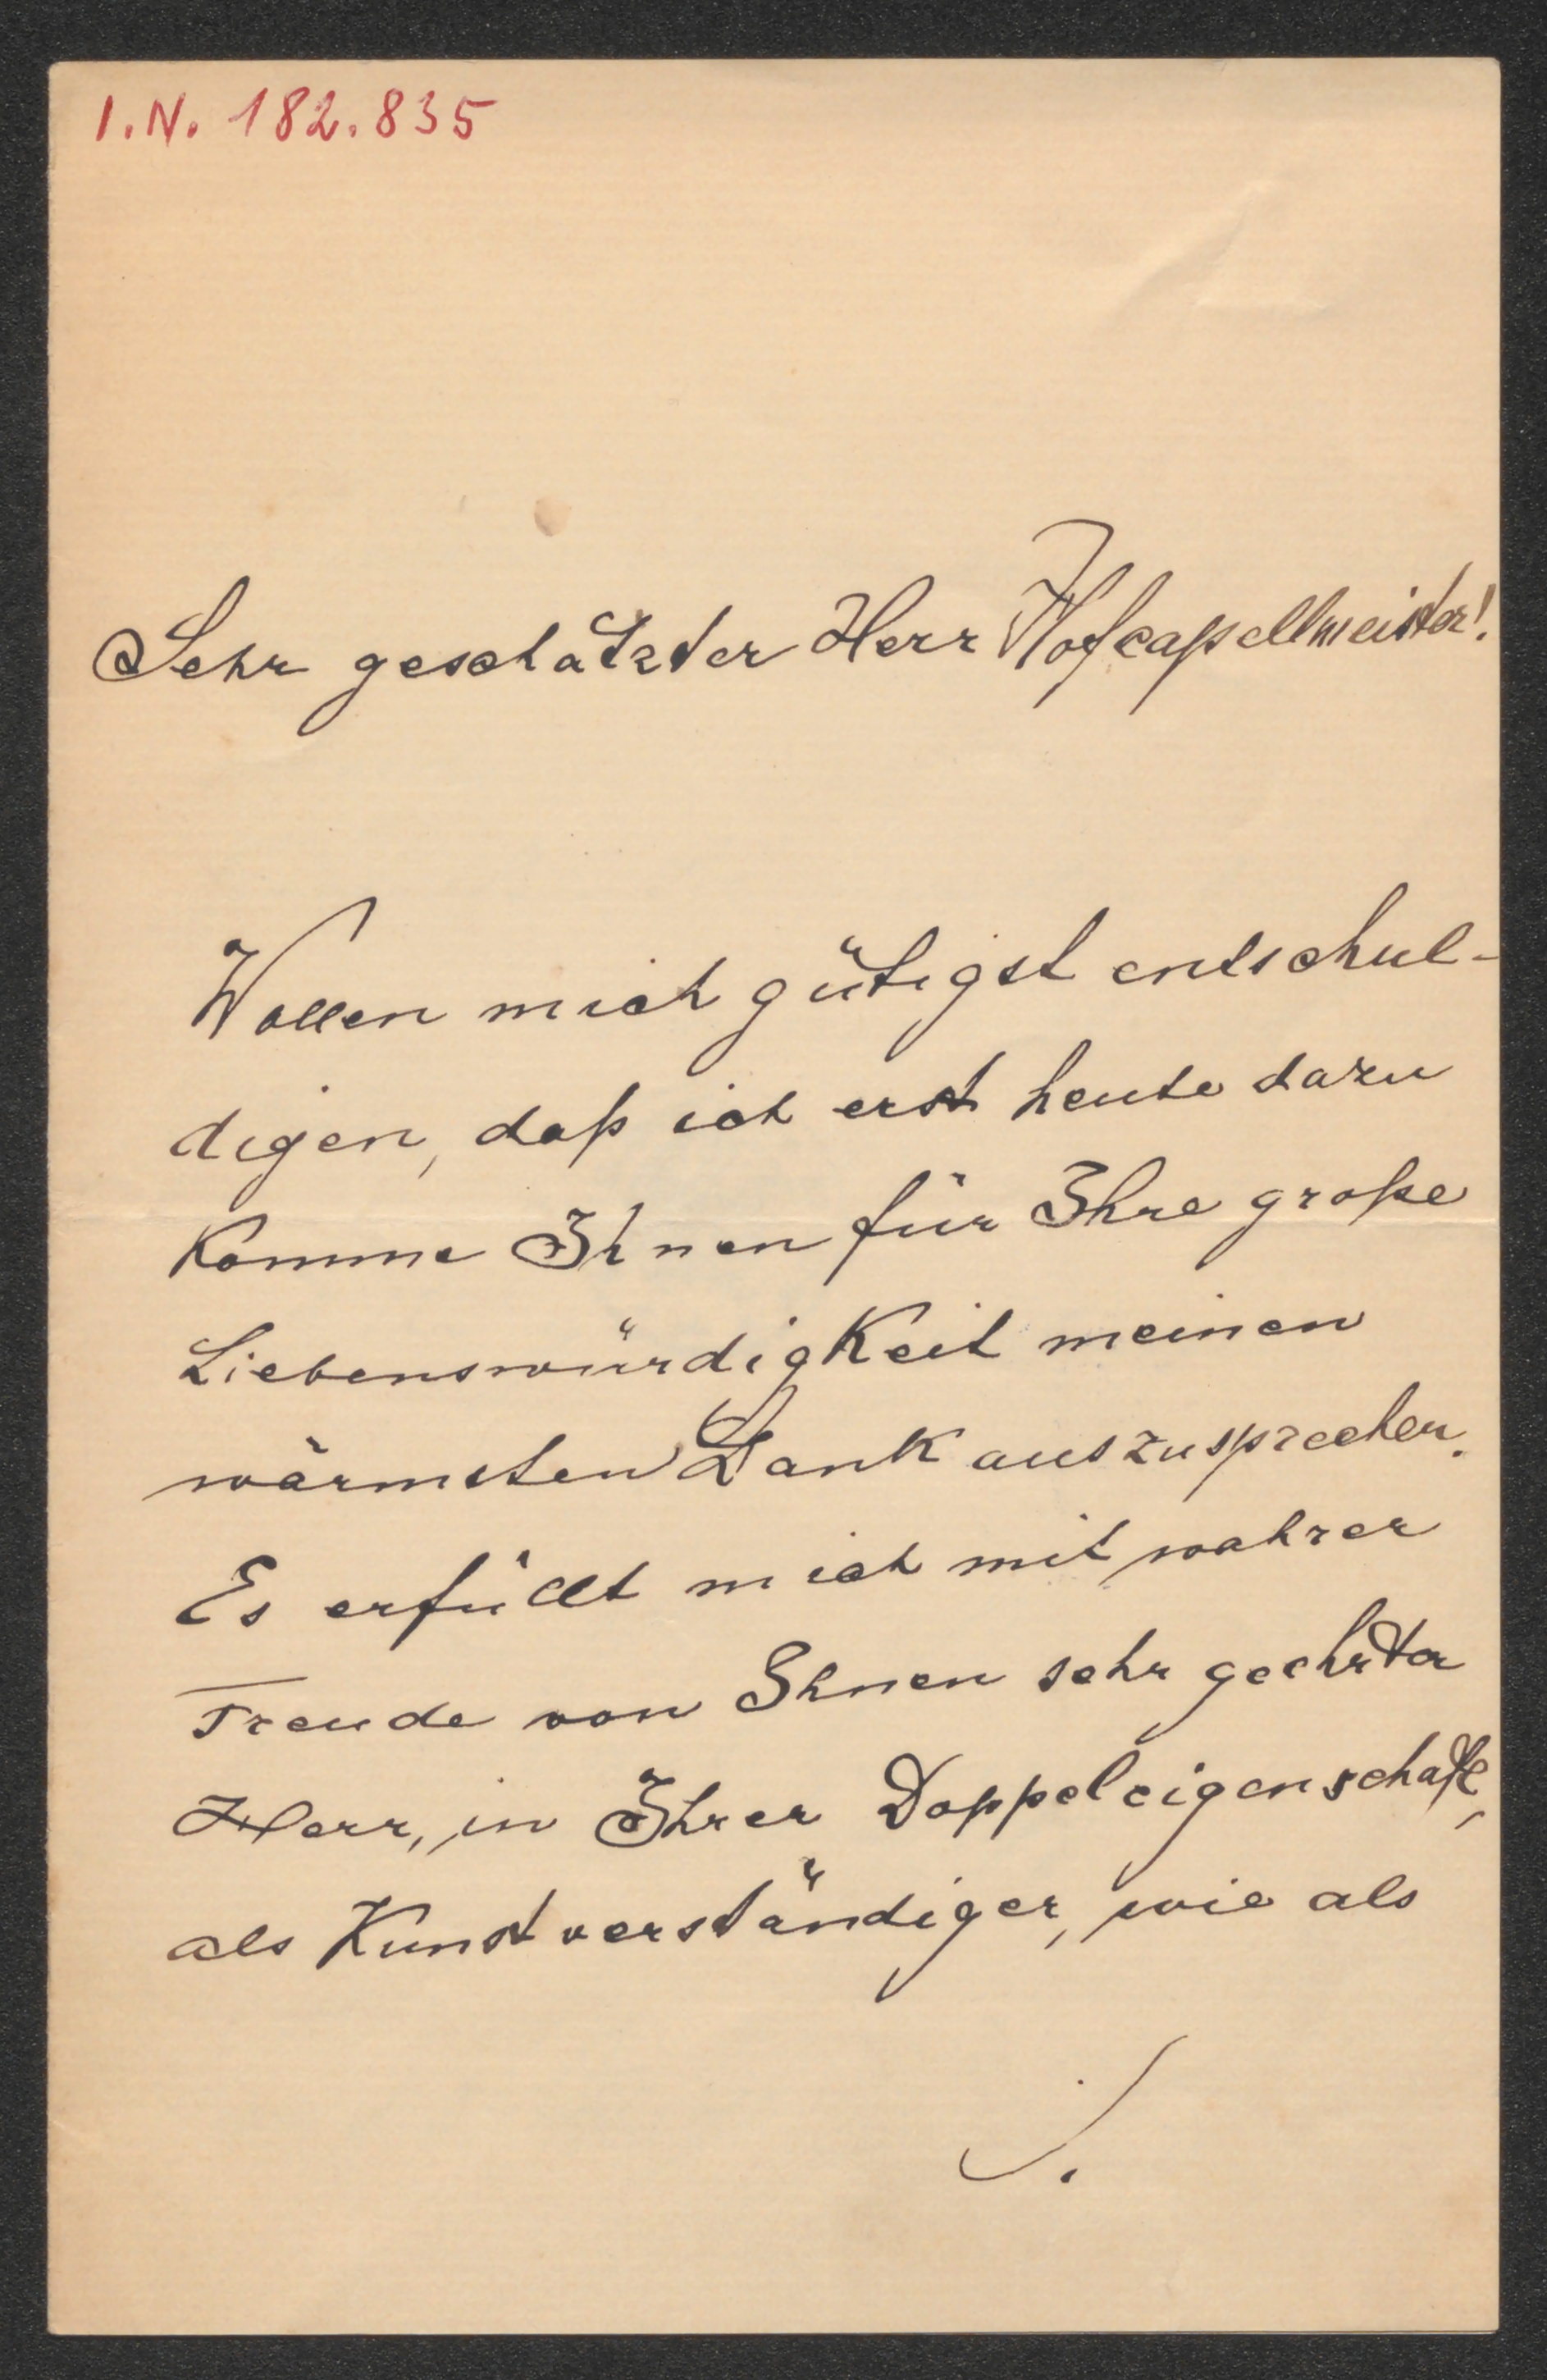 I.N. 182.835
Sehr geschätzter Herr Hofcapellmeister!
Wollen mich gütigst entschul-
digen, daß ich erst heute dazu
komme Ihnen für Ihre große
Liebenswürdigkeit meinen
wärmsten Dank auszusprechen.
Es erfüllt mich mit wahrer
Freude von Ihnen sehr geehrter
Herr, in Ihrer Doppeleigenschaft,
als Kunstverständiger, wie als